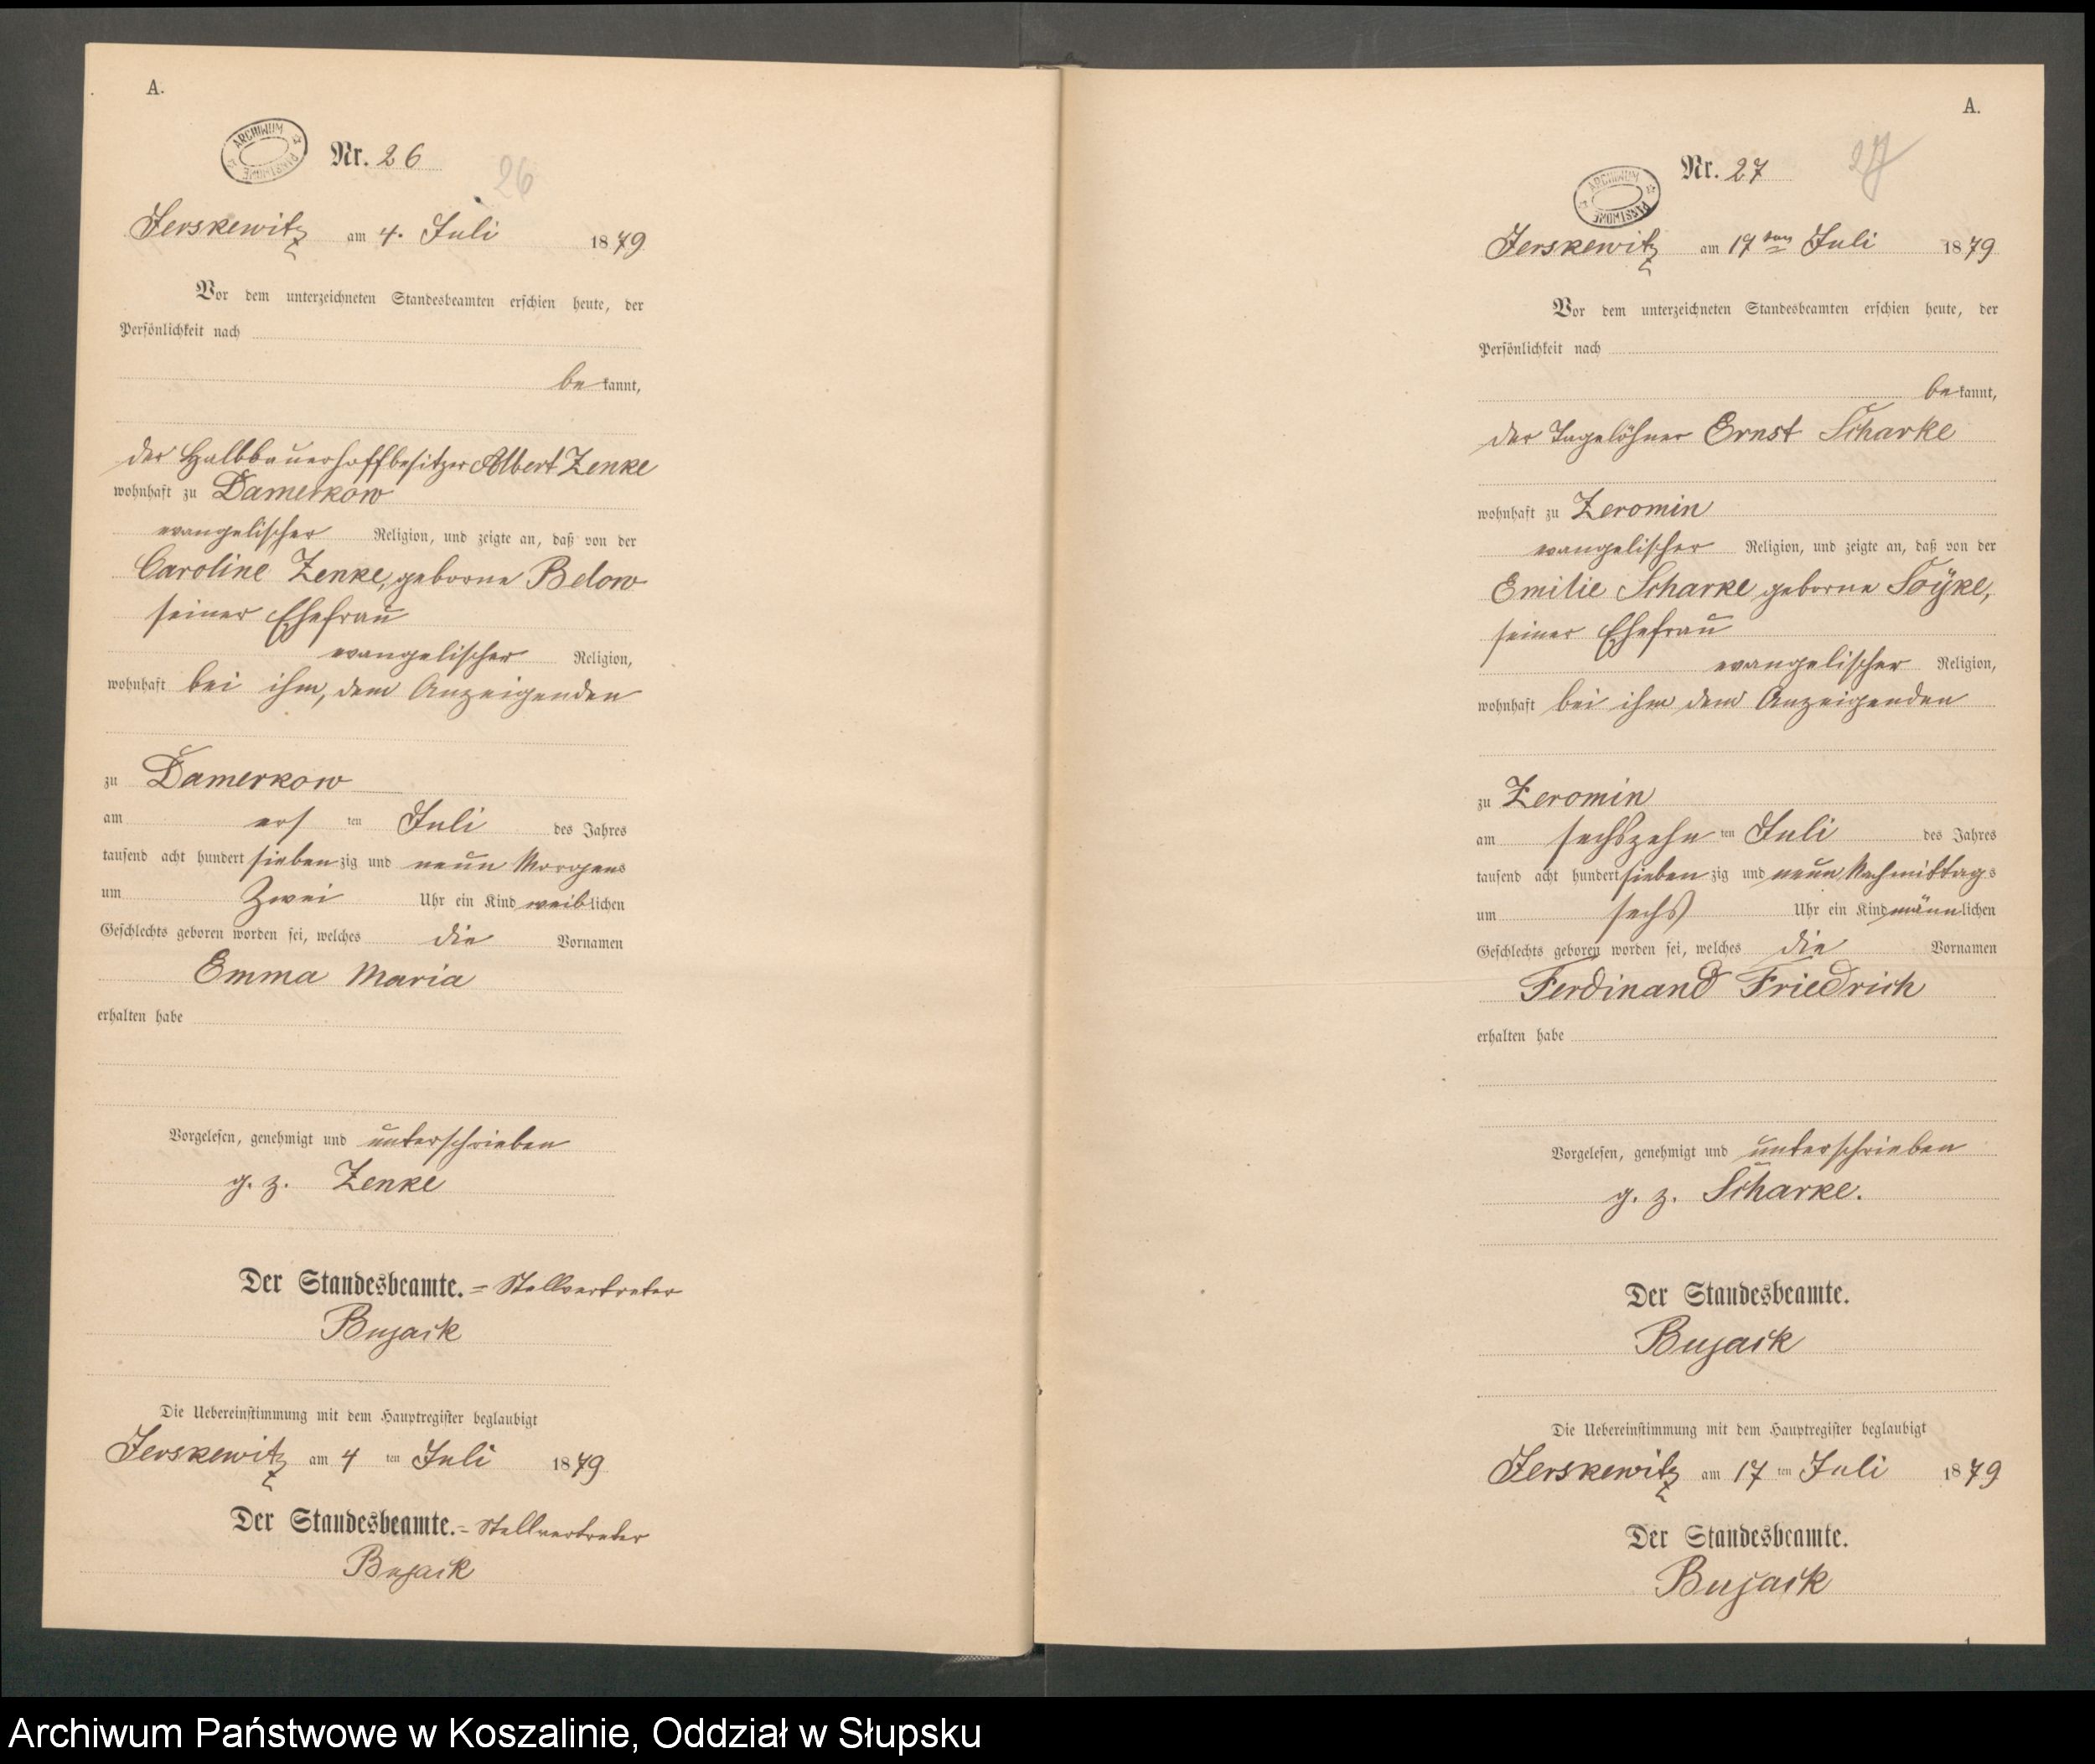 A.
ARCHIWUM PAŃSTWOWE
Nr. 26
26
Jerskewitz am 4. Juli 1879
Vor dem unterzeichneten Standesbeamten erschien heute, der
Persönlichkeit nach
be kannt,
der Halbbauerhoffbesitzer Albert Zenke
wohnhaft zu Damerkow
evangelischer Religion, und zeigte an, daß von der
Caroline Zenke, geborne Below
seiner Ehefrau
evangelischer Religion,
wohnhaft bei ihm, dem Anzeigenden
zu Damerkow
am ers ten Juli des Jahres
tausend acht hundert sieben zig und neun Morgens
um Zwei Uhr ein Kind weib lichen
Geschlechts geboren worden sei, welches die Vornamen
Emma Maria
erhalten habe
Vorgelesen, genehmigt und unterschrieben
g. z. Zenke
Der Standesbeamte. = Stellvertreter
Bujack
Die Uebereinstimmung mit dem Hauptregister beglaubigt
Jerskewitz am 4 ten Juli 1879
Der Standesbeamte. = Stellvertreter
Bujack
A.
ARCHIWUM PAŃSTWOWE
Nr. 27
27
Jerskewitz am 17ten Juli 1879
Vor dem unterzeichneten Standesbeamten erschien heute, der
Persönlichkeit nach
be kannt,
der Tagelöhner Ernst Scharke
wohnhaft zu Zeromin
evangelischer Religion, und zeigte an, daß von der
Emilie Scharke geborne Söÿke,
seiner Ehefrau
evangelischer Religion,
wohnhaft bei ihm dem Anzeigenden
zu Zeromin
am sechszehn ten Juli des Jahres
tausend acht hundert sieben zig und neun Nachmittags
um sechs Uhr ein Kind männ lichen
Geschlechts geboren worden sei, welches die Vornamen
Ferdinand Friedrich
erhalten habe
Vorgelesen, genehmigt und unterschrieben
g. z. Scharke.
Der Standesbeamte.
Bujack
Die Uebereinstimmung mit dem Hauptregister beglaubigt
Jerskewitz am 17 ten Juli 1879
Der Standesbeamte.
Bujack
Archiwum Państwowe w Koszalinie, Oddział w Słupsku